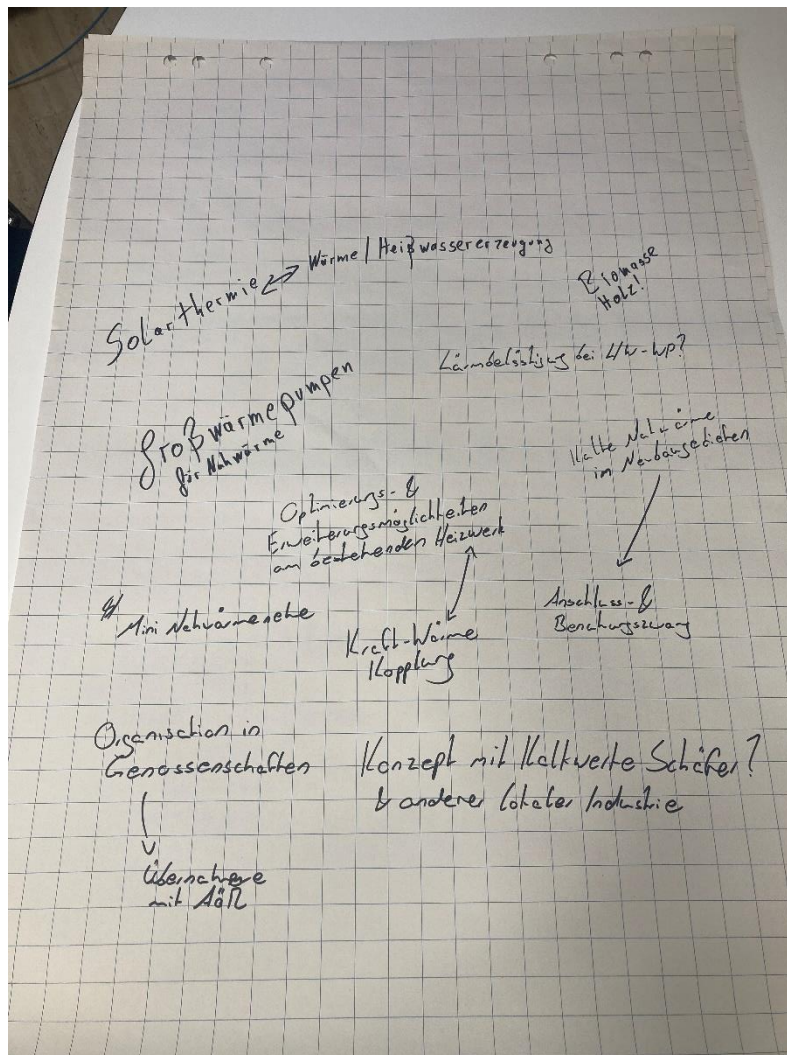 Solarthermie
Wärme / Heißwassererzeugung
Biomasse
Holz!
Lärmbelästigung bei LW-WP?
Großwärmepumpen
für Nahwärme
Kalte Nahwärme
im Neubaugebieten
Optimierungs- &
Erweiterungsmöglichkeiten
am bestehenden Heizwerk
Mini Nahwärmenetze
Kraft-Wärme
Kopplung
Anschluss- &
Benutzungszwang
Organisation in
Genossenschaften
Konzept mit Kalkwerke Schäfer?
& anderer lokaler Industrie
mit AöR